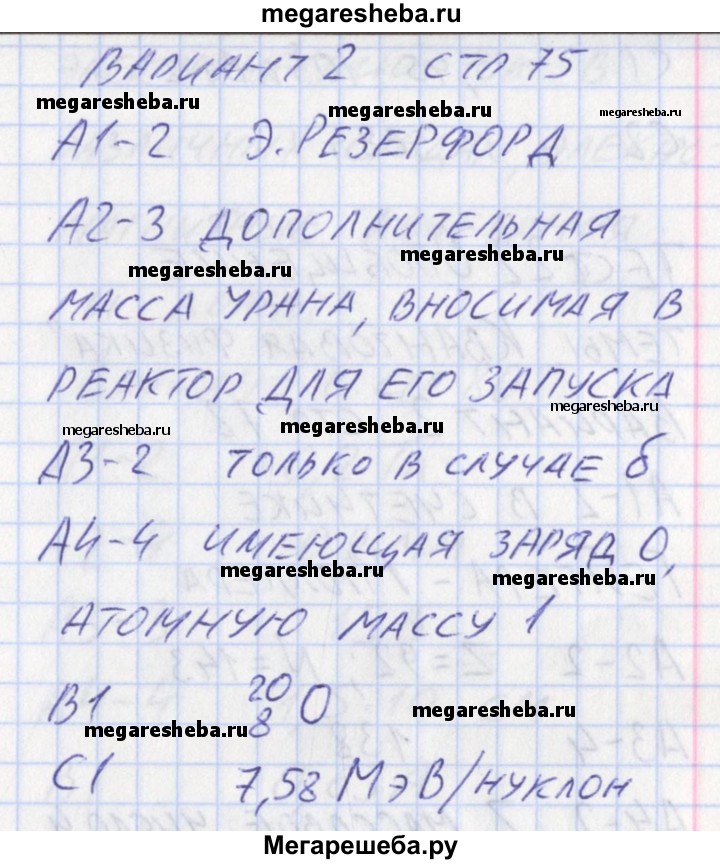 megaresheba.ru
ВАРИАНТ 2 СТР 75
megaresheba.ru megaresheba.ru megaresheba.ru
А1-2 Э. РЕЗЕРФОРД
А2-3 ДОПОЛНИТЕЛЬНАЯ
megaresheba.ru megaresheba.ru
МАССА УРАНА, ВНОСИМАЯ В
РЕАКТОР ДЛЯ ЕГО ЗАПУСКА
megaresheba.ru megaresheba.ru megaresheba.ru
А3-2 ТОЛЬКО В СЛУЧАЕ б
А4-4 ИМЕЮЩАЯ ЗАРЯД 0,
megaresheba.ru megaresheba.ru
АТОМНУЮ МАССУ 1
В1 ²⁰₈O
megaresheba.ru megaresheba.ru
С1 7,58 МэВ/нуклон
Мегарешеба.ру